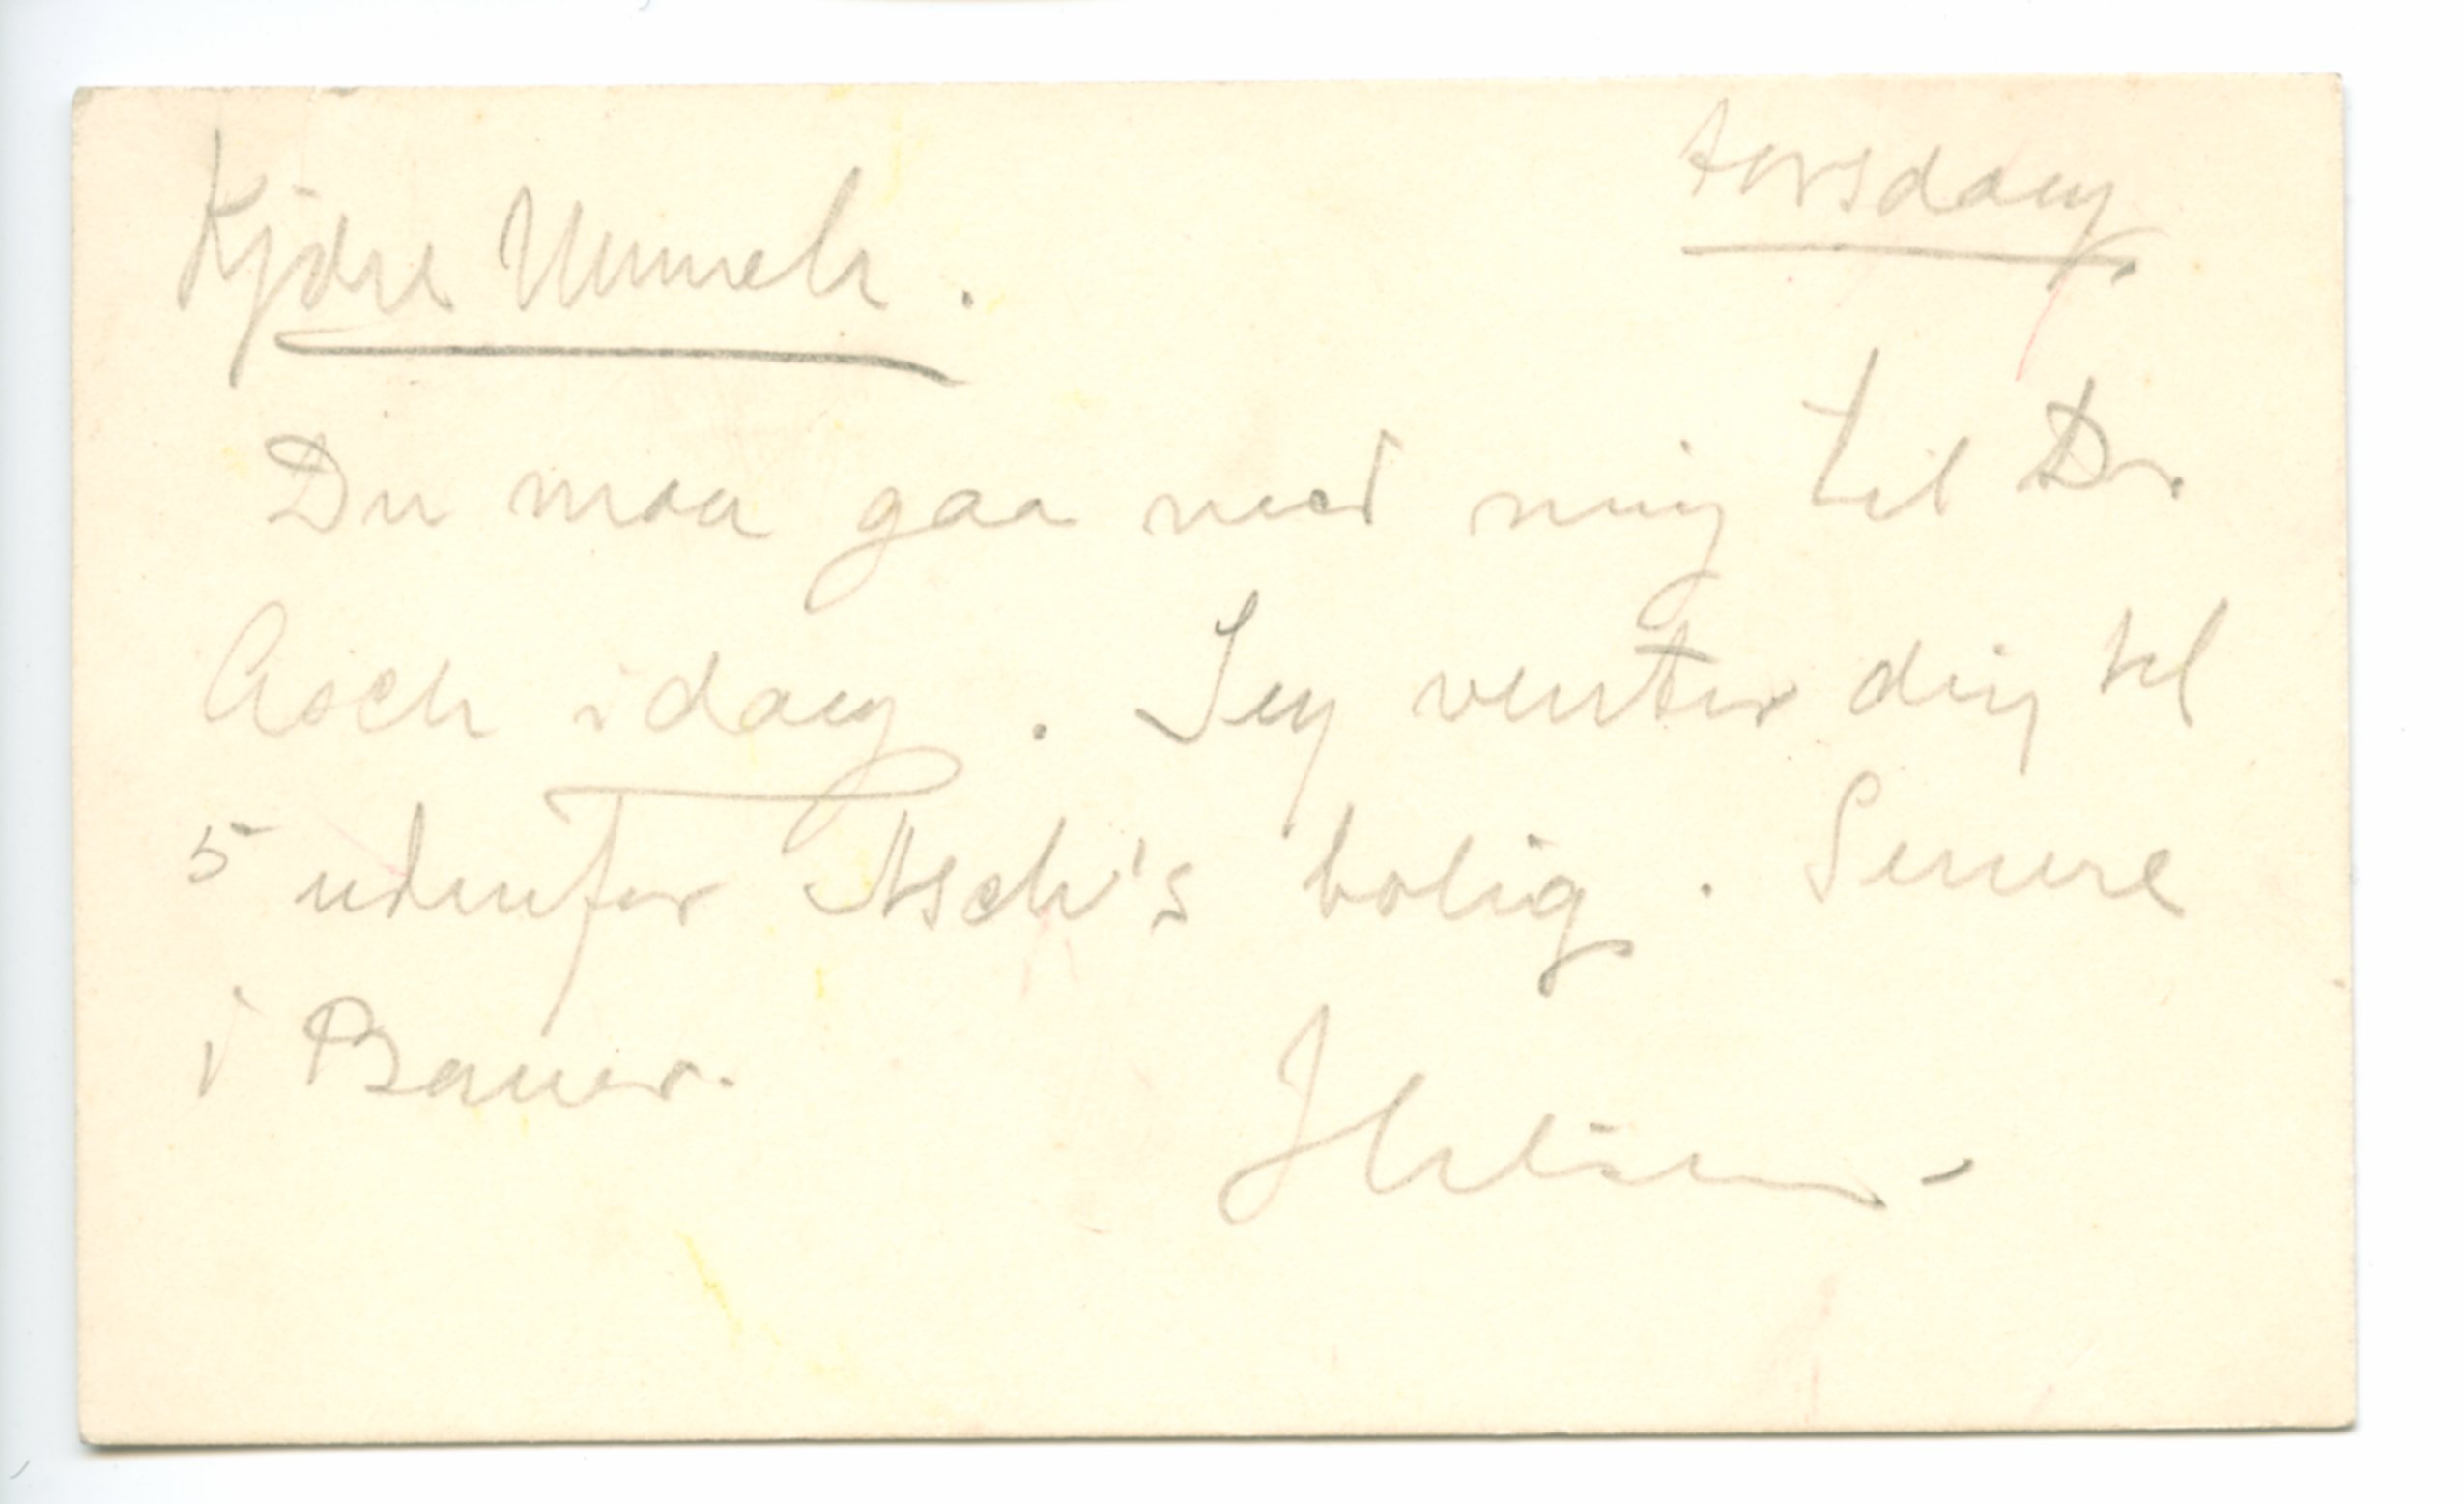 torsdag
Kjære Munch.
Du maa gaa med mig til Dr.
Asch idag. Jeg venter dig kl
5 udenfor Asch's bolig. Senere
i Bauer.